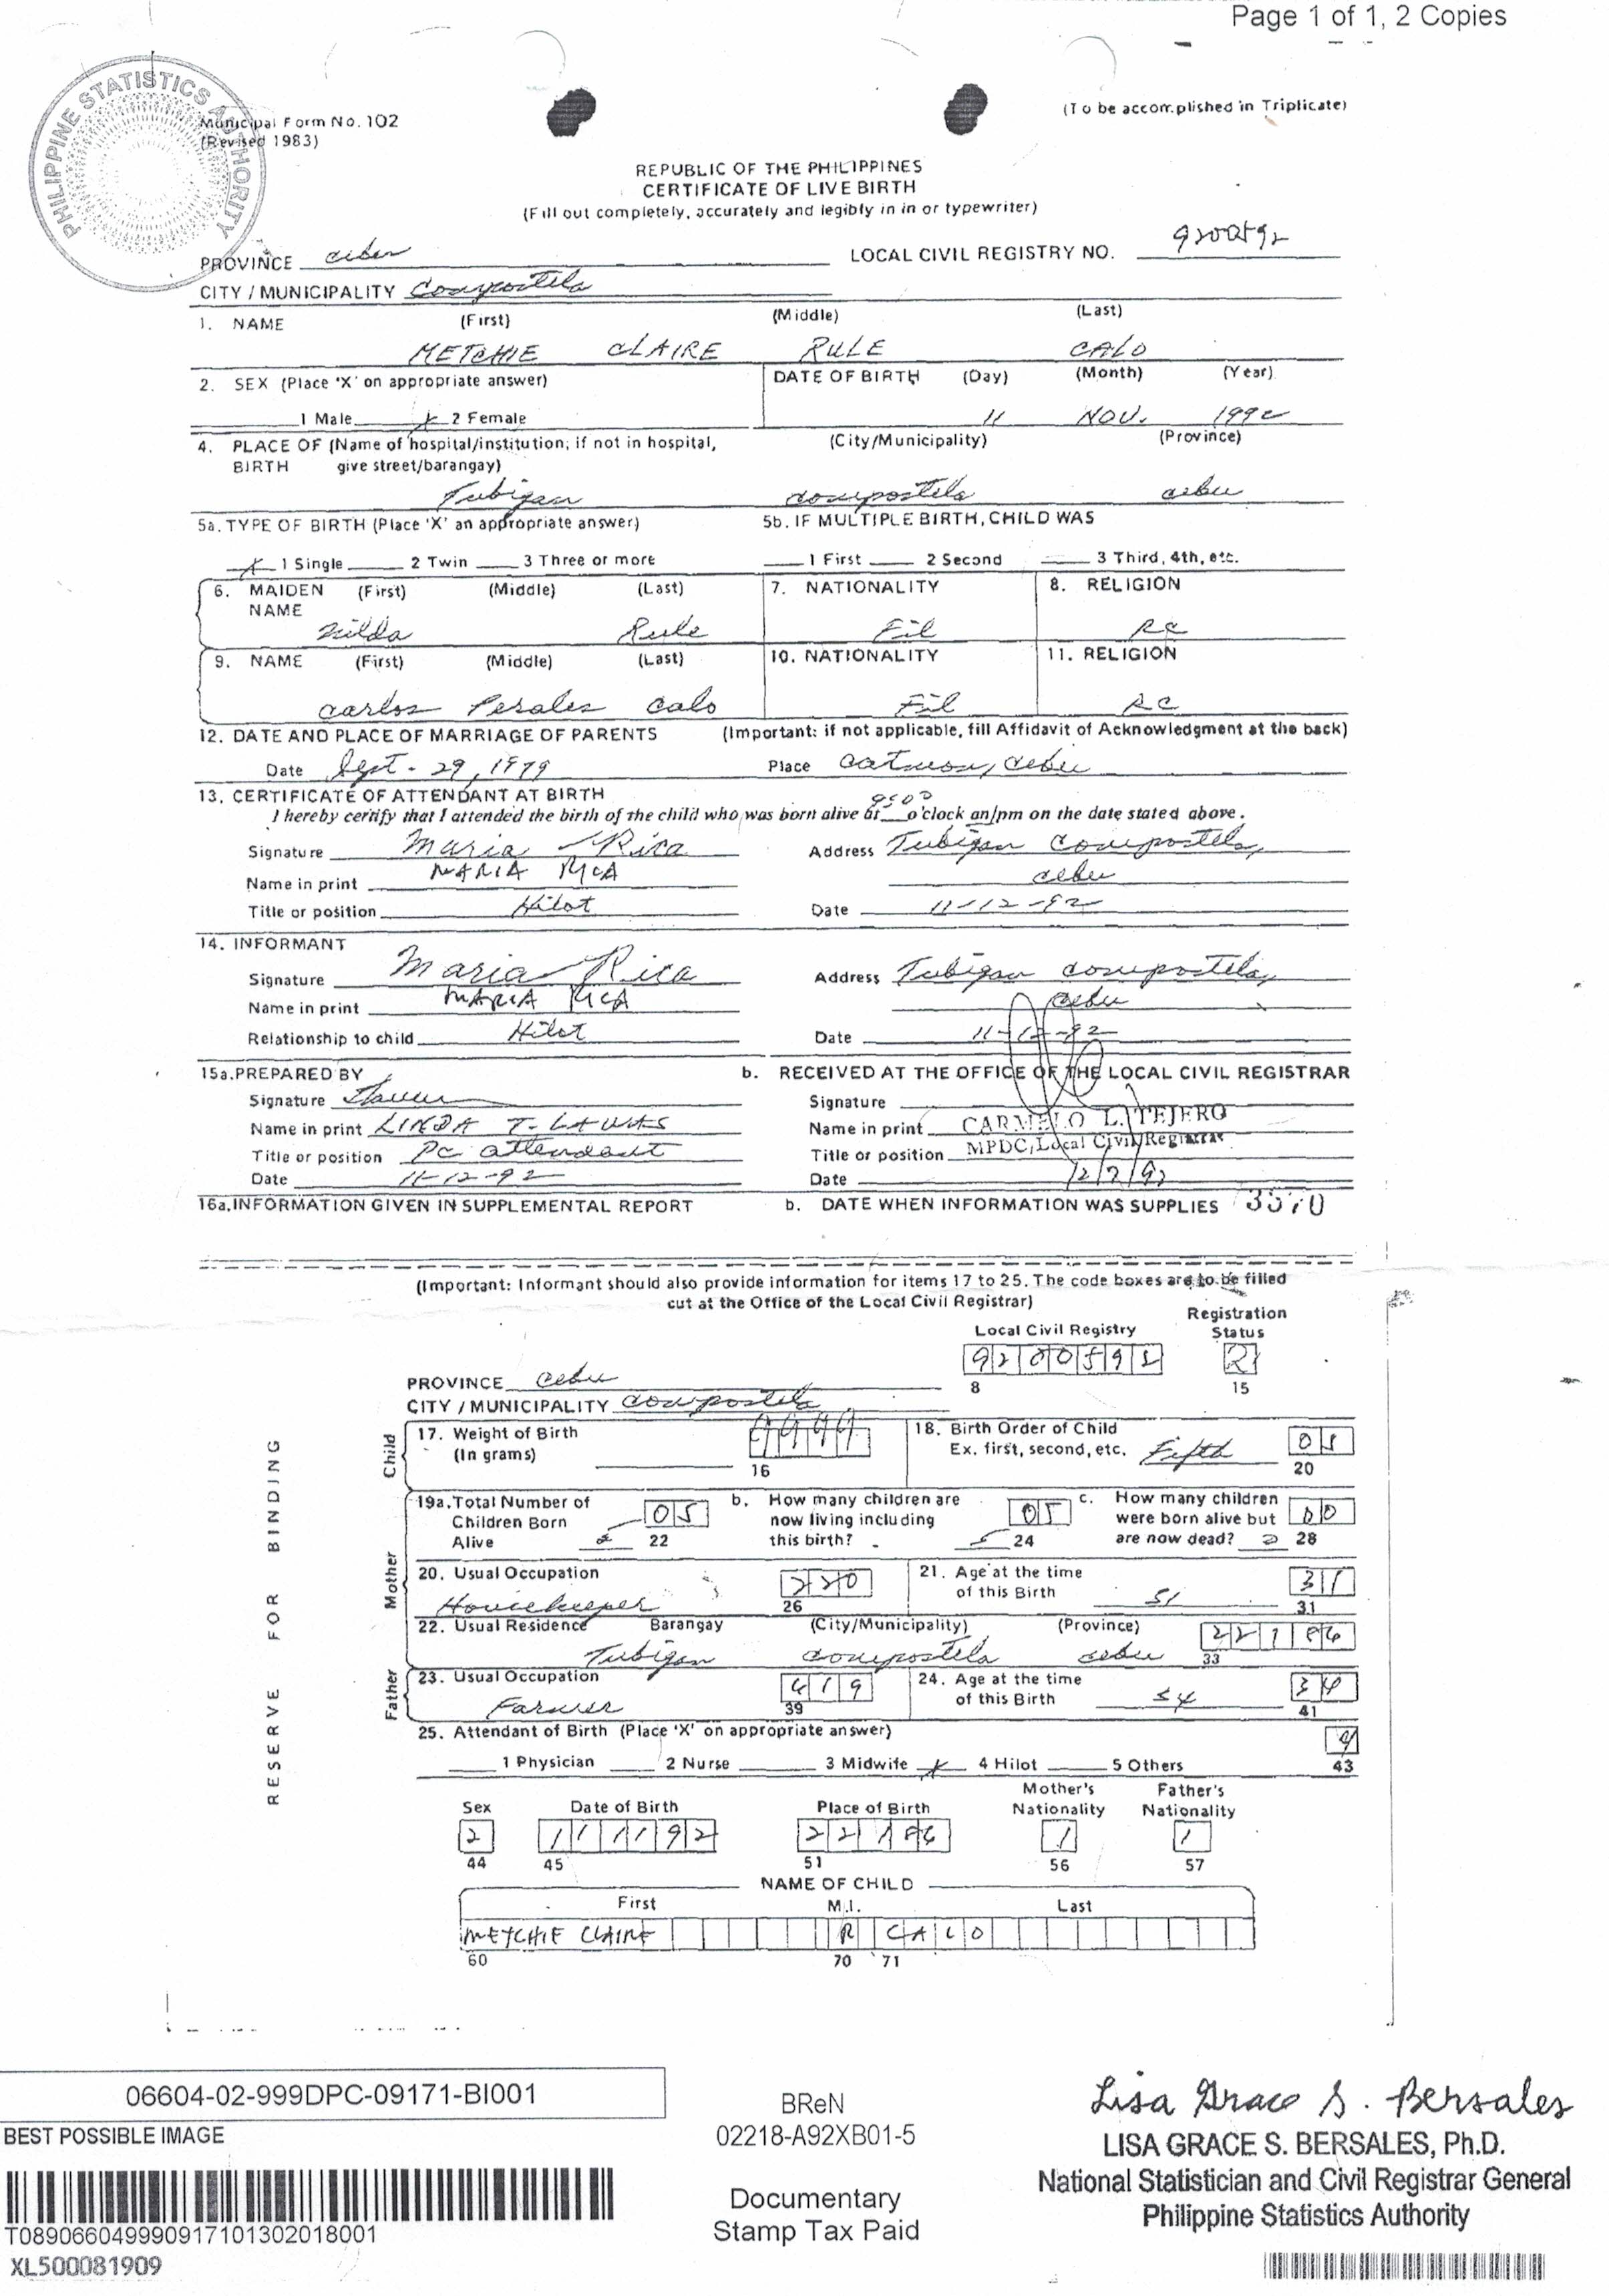 Page 1 of 1, 2 Copies
PHILIPPINE STATISTICS AUTHORITY
Municipal Form No. 102
(Revised 1983)
(To be accomplished in Triplicate)
REPUBLIC OF THE PHILIPPINES
CERTIFICATE OF LIVE BIRTH
(Fill out completely, accurately and legibly in in or typewriter)
PROVINCE Cebu LOCAL CIVIL REGISTRY NO. 9200592
CITY / MUNICIPALITY Compostela
1. NAME (First) (Middle) (Last)
METCHIE CLAIRE RULE CALO
2. SEX (Place 'X' on appropriate answer) DATE OF BIRTH (Day) (Month) (Year)
1 Male X 2 Female 11 NOV. 1992
4. PLACE OF (Name of hospital/institution; if not in hospital, (City/Municipality) (Province)
BIRTH give street/barangay)
Tubigan Compostela Cebu
5a. TYPE OF BIRTH (Place 'X' an appropriate answer) 5b. IF MULTIPLE BIRTH, CHILD WAS
X 1 Single 2 Twin 3 Three or more 1 First 2 Second 3 Third, 4th, etc.
6. MAIDEN (First) (Middle) (Last) 7. NATIONALITY 8. RELIGION
NAME
Nilda Rule Fil RC
9. NAME (First) (Middle) (Last) 10. NATIONALITY 11. RELIGION
Carlos Perales Calo Fil RC
12. DATE AND PLACE OF MARRIAGE OF PARENTS (Important: if not applicable, fill Affidavit of Acknowledgment at the back)
Date Sept. 29, 1979 Place Catmon, Cebu
13. CERTIFICATE OF ATTENDANT AT BIRTH
I hereby certify that I attended the birth of the child who was born alive at o'clock am/pm on the date stated above.
Signature Maria Rica Address Tubigan Compostela,
Name in print MARIA RICA Cebu
Title or position Hilot Date 11-12-92
14. INFORMANT
Signature Maria Rica Address Tubigan Compostela,
Name in print MARIA RICA Cebu
Relationship to child Hilot Date 11-12-92
15a. PREPARED BY b. RECEIVED AT THE OFFICE OF THE LOCAL CIVIL REGISTRAR
Signature Signature
Name in print LINDA T. LAWAS Name in print CARMELO L. TEJERO
Title or position PC attendant Title or position MPDC, Local Civil Registrar
Date 11-12-92 Date 12/7/92
16a. INFORMATION GIVEN IN SUPPLEMENTAL REPORT b. DATE WHEN INFORMATION WAS SUPPLIES 3570
(Important: Informant should also provide information for items 17 to 25. The code boxes are to be filled
cut at the Office of the Local Civil Registrar)
Registration
Local Civil Registry Status
9200592 2
PROVINCE Cebu 8 15
CITY / MUNICIPALITY Compostela
RESERVE FOR BINDING
Child
17. Weight of Birth 9999 18. Birth Order of Child
(In grams) Ex. first, second, etc. Fifth 05
16 20
Mother
19a. Total Number of b. How many children are c. How many children
Children Born 05 now living including 05 were born alive but 00
Alive 5 22 this birth? 5 24 are now dead? 0 28
20. Usual Occupation 220 21. Age at the time 31
Housekeeper 26 of this Birth 31 31
22. Usual Residence Barangay (City/Municipality) (Province) 22186
Tubigan Compostela Cebu 33
Father
23. Usual Occupation 619 24. Age at the time 34
Farmer 39 of this Birth 34 41
25. Attendant of Birth (Place 'X' on appropriate answer) 4
1 Physician 2 Nurse 3 Midwife X 4 Hilot 5 Others 43
Mother's Father's
Sex Date of Birth Place of Birth Nationality Nationality
2 111192 22186 1 1
44 45 51 56 57
NAME OF CHILD
First M.I. Last
METCHIE CLAIRE R CALO
60 70 71
06604-02-999DPC-09171-BI001
BEST POSSIBLE IMAGE
T08906604999091710130​2018001
XL500081909
BReN
02218-A92XB01-5
Documentary
Stamp Tax Paid
Lisa Grace S. Bersales
LISA GRACE S. BERSALES, Ph.D.
National Statistician and Civil Registrar General
Philippine Statistics Authority